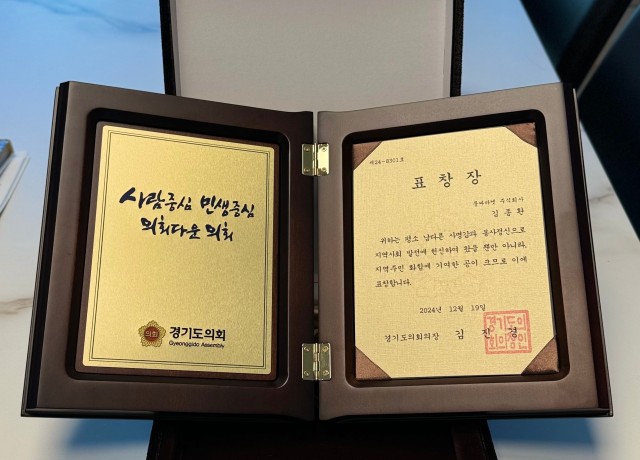 사람중심 민생중심
의회다운 의회
의회
경기도의회
Gyeonggido Assembly
제24-8311호
표 창 장
주식회사
김 종 환
귀하는 평소 남다른 사명감과 봉사정신으로
지역사회 발전에 헌신하여 왔을 뿐만 아니라,
지역주민 화합에 기여한 공이 크므로 이에
표창합니다.
2024년 12월 19일
경기도의회의장 김 진 경
경기도의
회의장인